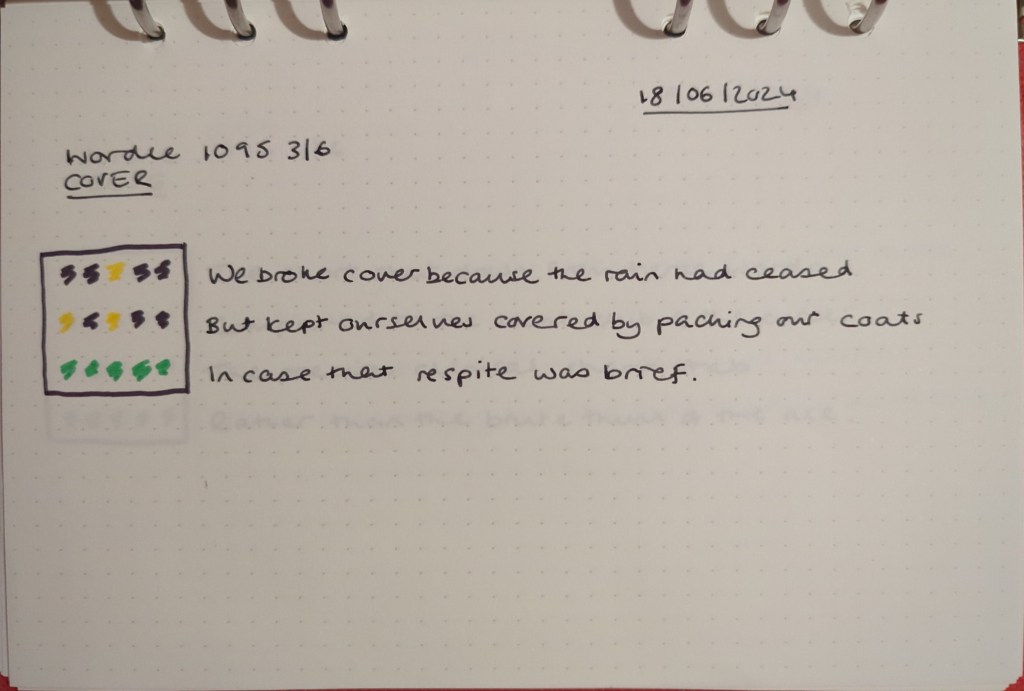 18/06/2024
Wordle 1095 3/6
COVER
We broke cover because the rain had ceased
But kept ourselves covered by packing our coats
In case that respite was brief.